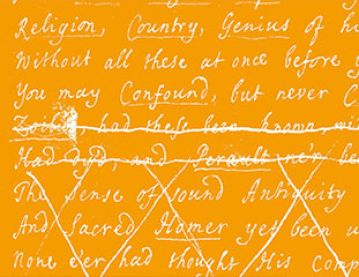 Religion, Country, Genius of h
Without all these at once before y
You may Confound, but never C
Zoilus, had these been known,
Had dy'd, and Perault ne'r be
The Sense of sound Antiquity
And Sacred Homer yet been u
None e'er had thought His Comp